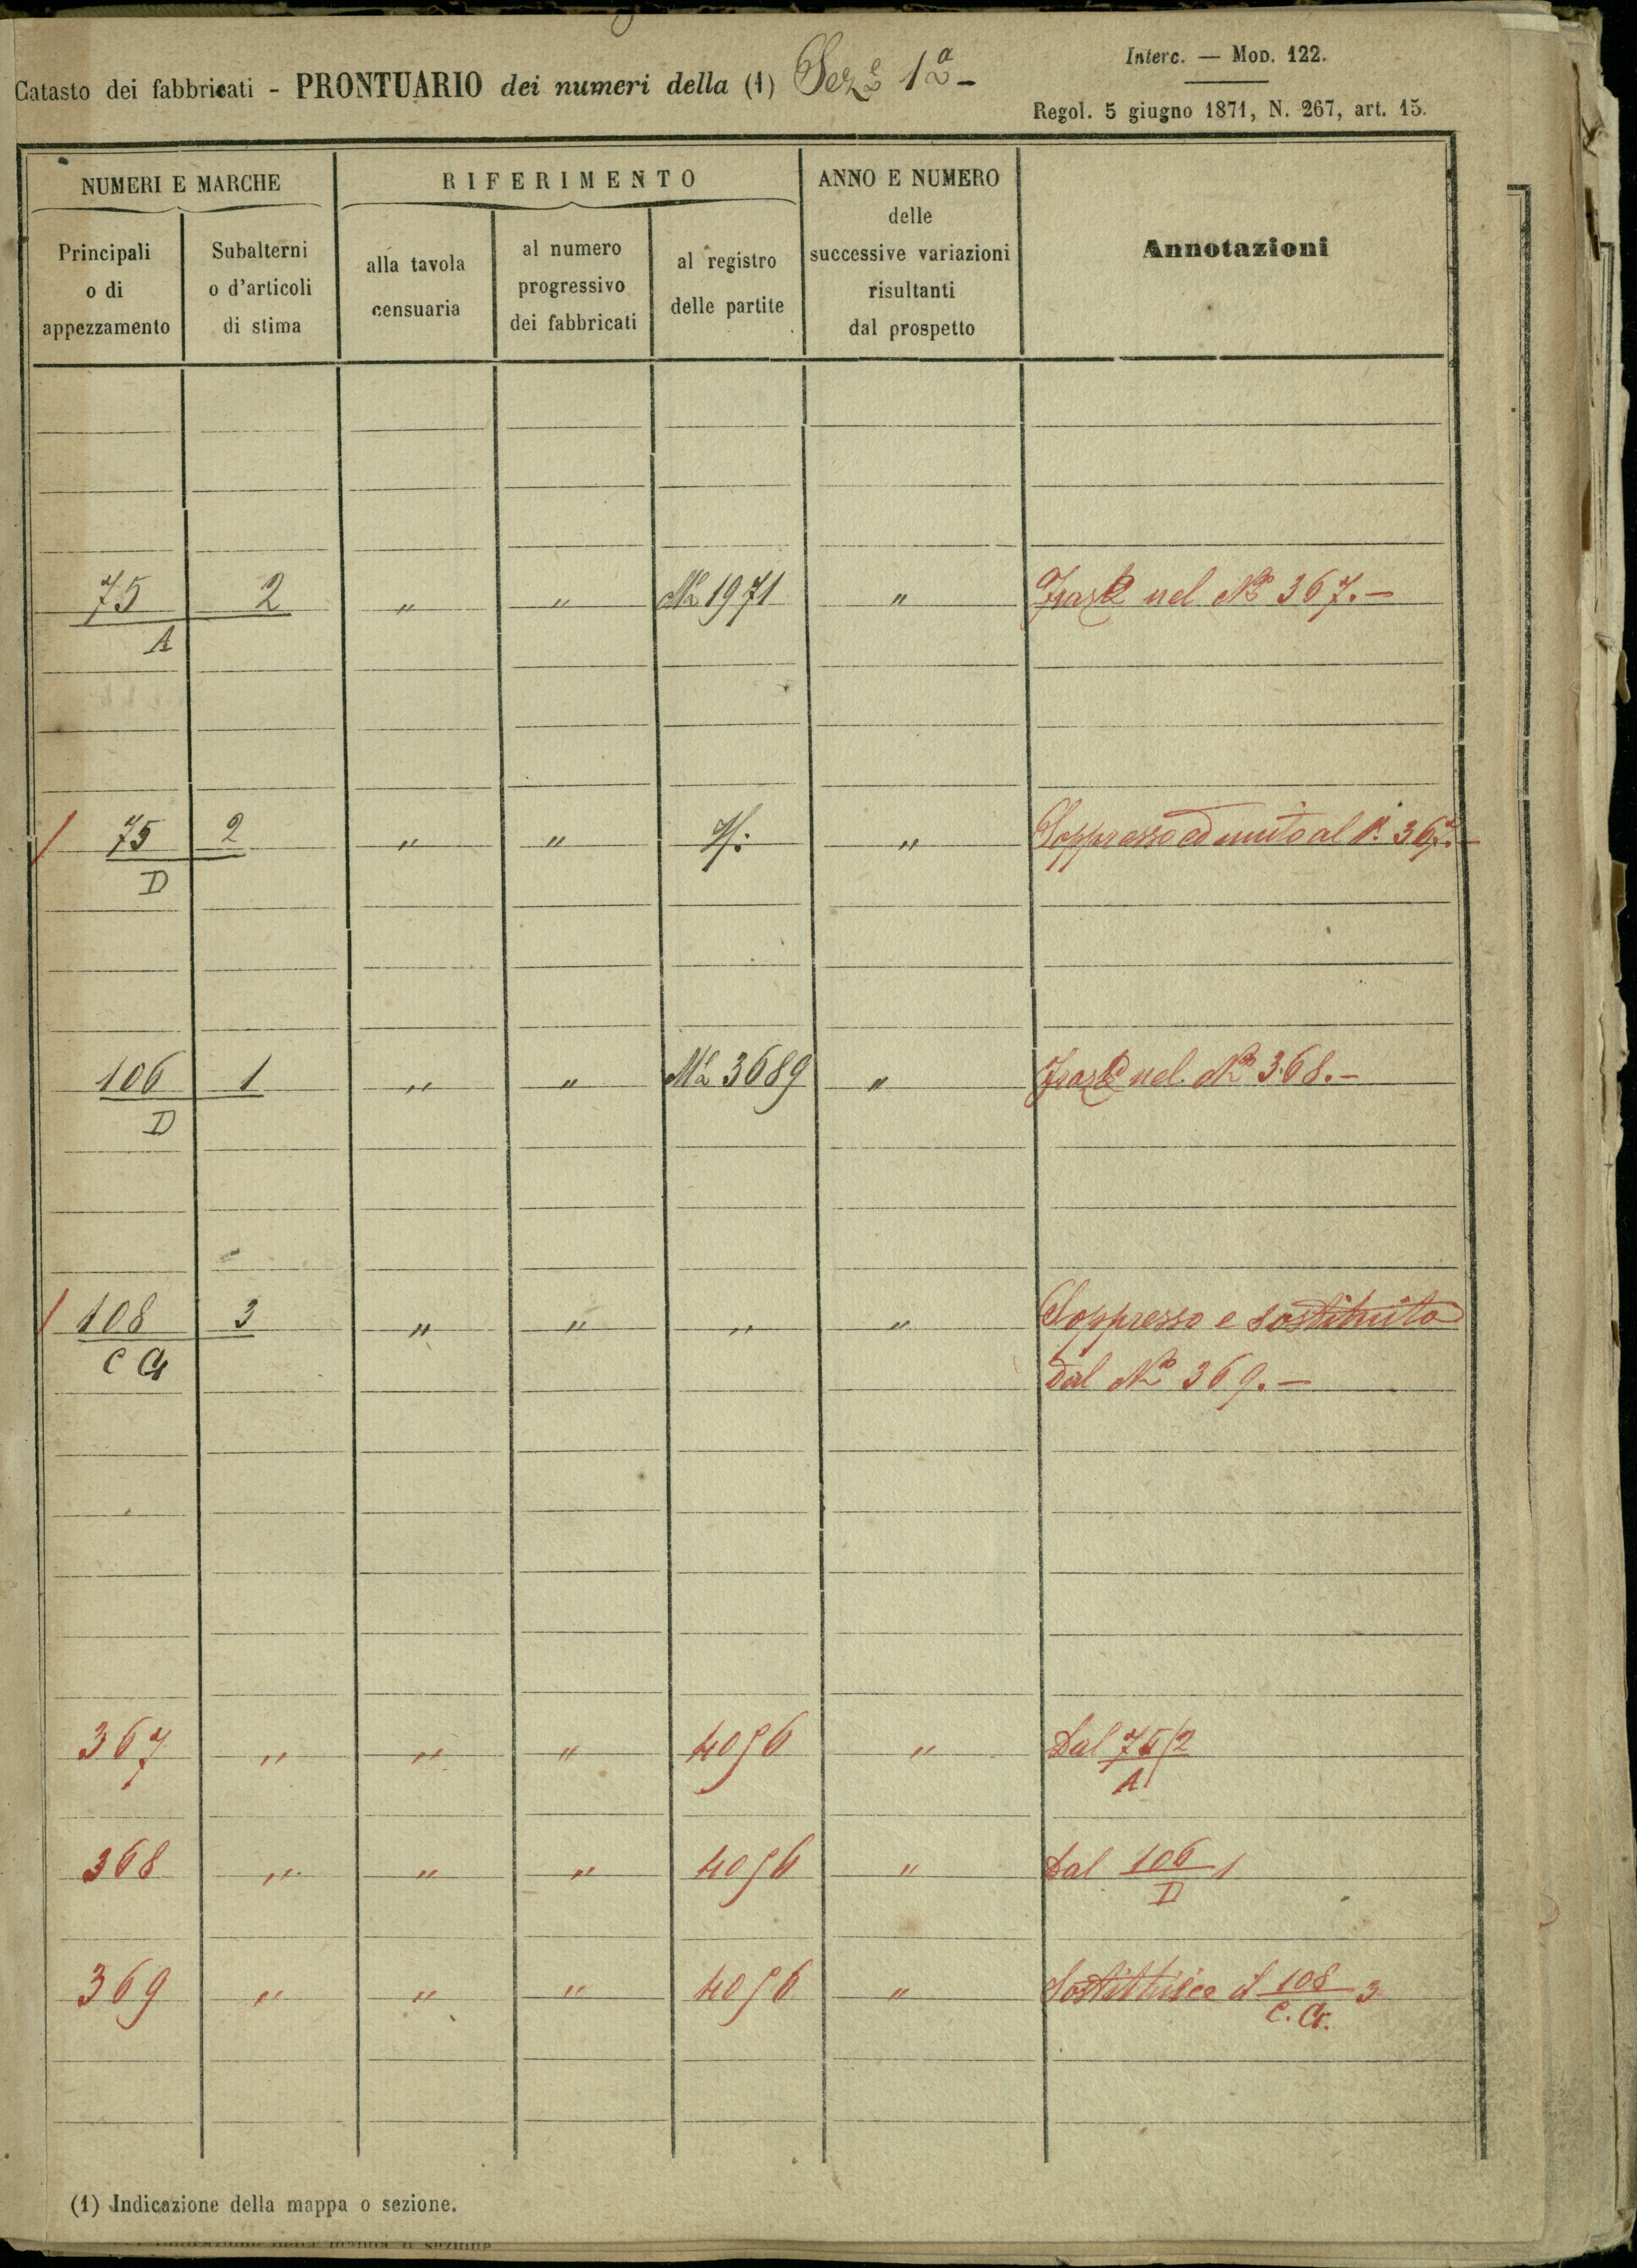 Catasto dei fabbricati - PRONTUARIO dei numeri della (1) Sez.e 1a -
Interc. — MOD. 122.
Regol. 5 giugno 1871, N. 267, art. 15.
NUMERI E MARCHE
RIFERIMENTO
ANNO E NUMERO
delle
successive variazioni
risultanti
dal prospetto
Annotazioni
Principali
o di
appezzamento
Subalterni
o d'articoli
di stima
alla tavola
censuaria
al numero
progressivo
dei fabbricati
al registro
delle partite
75 2 " " 1971 " nel No 367.-
A
/ 75 2 " " " Soppresso ed unito al N. 367.-
D
106 1 " " 3689 " nel No 368.-
D
/ 108 3 " " " " Soppresso e sostituito
C G dal No 369.-
367 " " " 4056 " Dal 75/2
A
368 " " " 4056 " Dal 106 1
D
369 " " " 4056 " Sostituisce il 108 3
C. G.
(1) Indicazione della mappa o sezione.